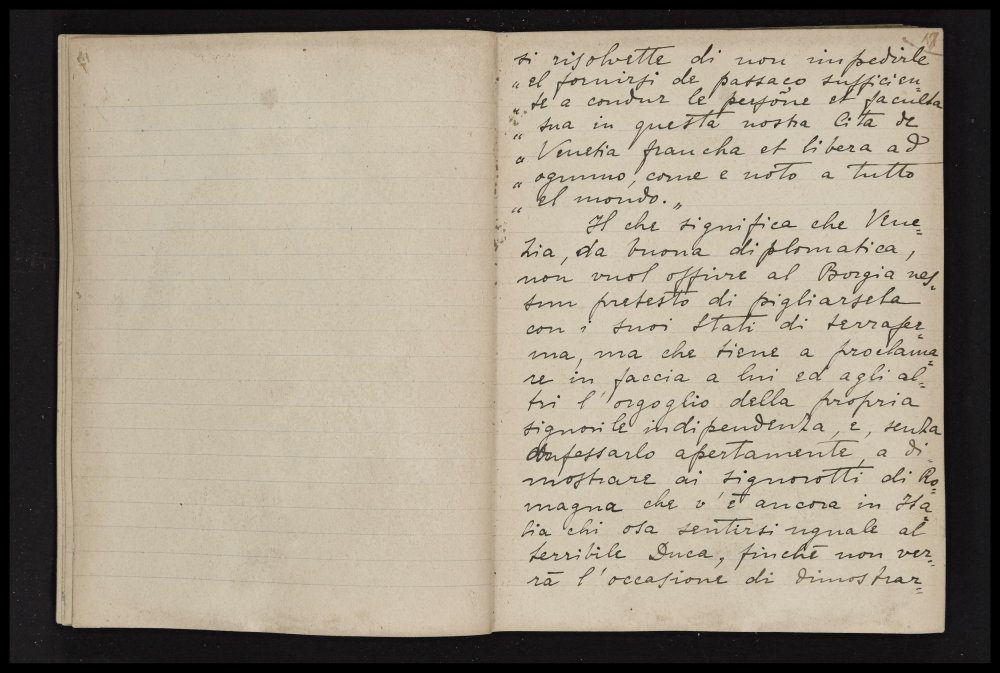 si risolvette di non impedirle
„ el fornirsi de passaco sufficien=
„ te a condur le persone et faculta
„ sua in questa nostra Cita de
„ Venetia francha et libera ad
„ ognuno, come e noto a tutto
„ el mondo. „
Il che significa che Vene=
zia, da buona diplomatica,
non vuol offrire al Borgia nes=
sun pretesto di pigliarsela
con i suoi Stati di terrafer=
ma, ma che tiene a proclama=
re in faccia a lui ed agli al=
tri l'orgoglio della propria
signorile indipendenza, e, senza
confessarlo apertamente, a di=
mostrare ai signorotti di Ro=
magna che v'è ancora in Ita=
lia chi osa sentirsi uguale al
terribile Duca, finchè non ver=
rà l'occasione di dimostrar=